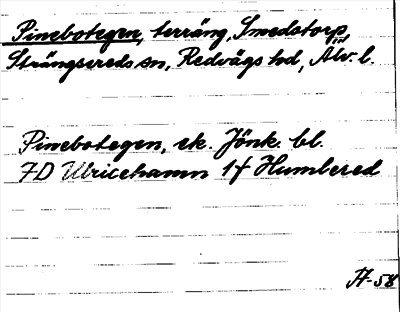 Pinebotegen, terräng, Smedstorp,
Strängsereds sn, Redvägs hd, Älv. l.
Pinebotegen, ek. Jönk. bl.
7D Ulricehamn 1f Humbered
A-58